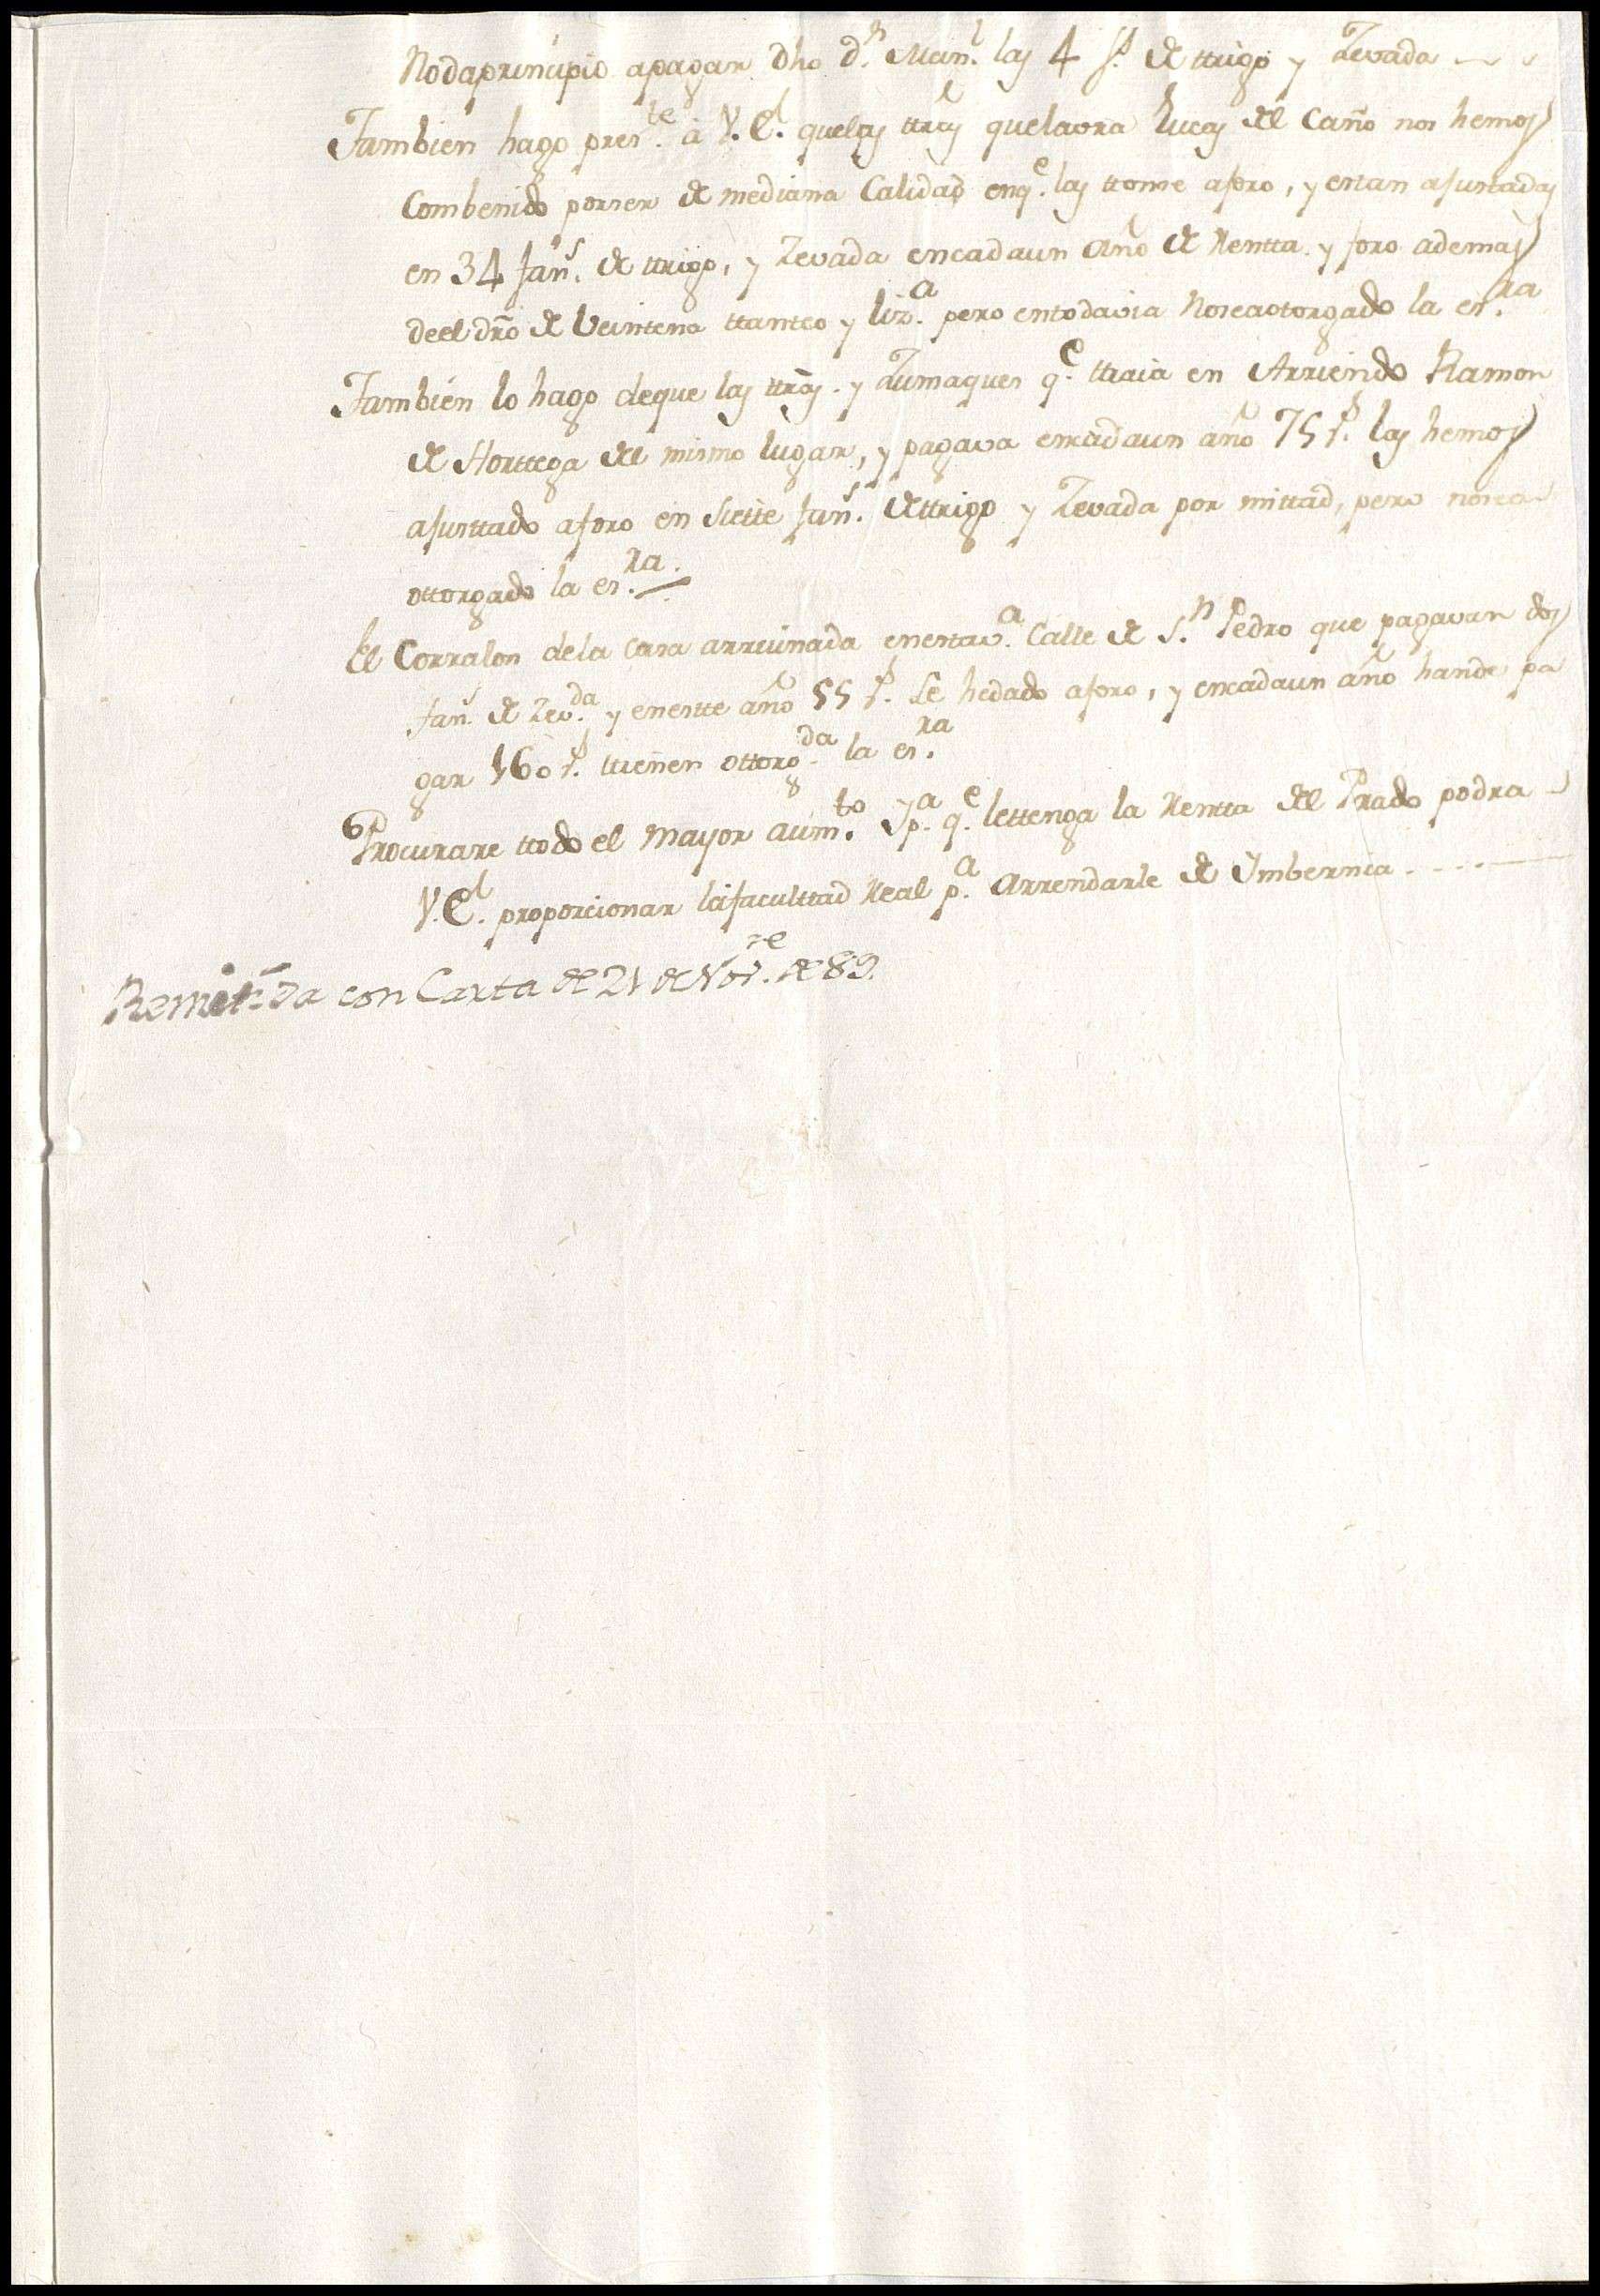 No da principio a pagar Dho d.n Man.l las 4 f.s de ttrigo y Zevada
Tambien hago pres.te à V.E. que las ttrãs que lavra Lucas del Caño nos hemos
Combenido por ser de mediana Calidad en q.e las ttome aforo, y estan ajustadas
en 34 fan.s de ttrigo, y Zevada en cada un año de Rentta y foro ademas
de el dro de Veintena ttanteo y liz.a pero en todavia no se a otorgado la es.ra
Tambien lo hago de que las ttrãs y Zumaques q.e ttraia en Arriendo Ramon
de Horttega del mismo lugar, y pagava en cada un año 75 r.s las hemos
ajusttado aforo en siette fan.s de ttrigo y Zevada por mittad, pero no se a
ottorgado la es.ra
El Corralon de la Casa arruinada en esta v.a Calle de S.n Pedro que pagavan dos
fan.s de Zev.da y en estte año 55 r.s se he dado aforo, y en cada un año han de pa
gar 160 r.s ttienen ottorg.da la es.ra
Procurare ttodo el mayor aum.to y p.a q.e le ttenga la Rentta del Prado podra
V.E. proporcionar la facultad Real p.a Arrendarle de Ymbernia
Remitida con Carta de 21 de Nov.re de 89.